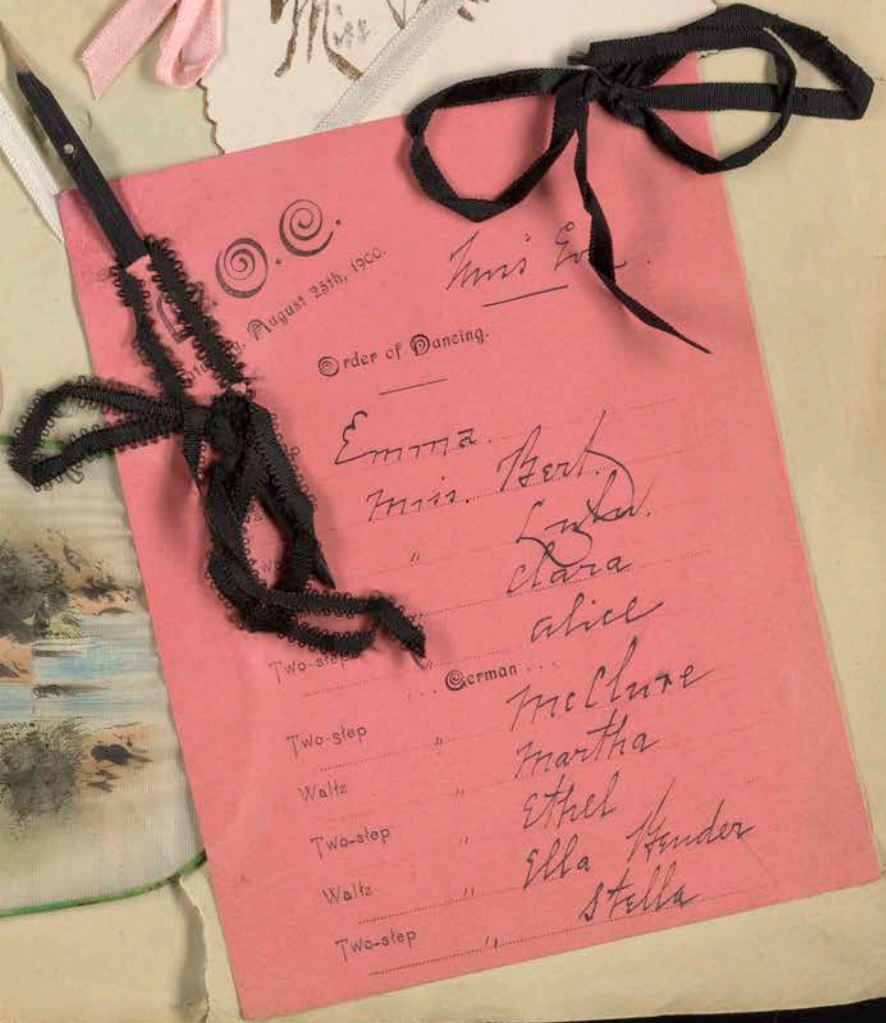 Miss
O.C.
August 25th, 1900.
Miss
Order of Dancing.
Emma.
Miss. Bert.
" Lulu.
Clara
Two-step " Alice
... German ...
Two-step " McClure
Waltz " Martha
Two-step " Ethel
Waltz " Ella Hender
Two-step " Stella